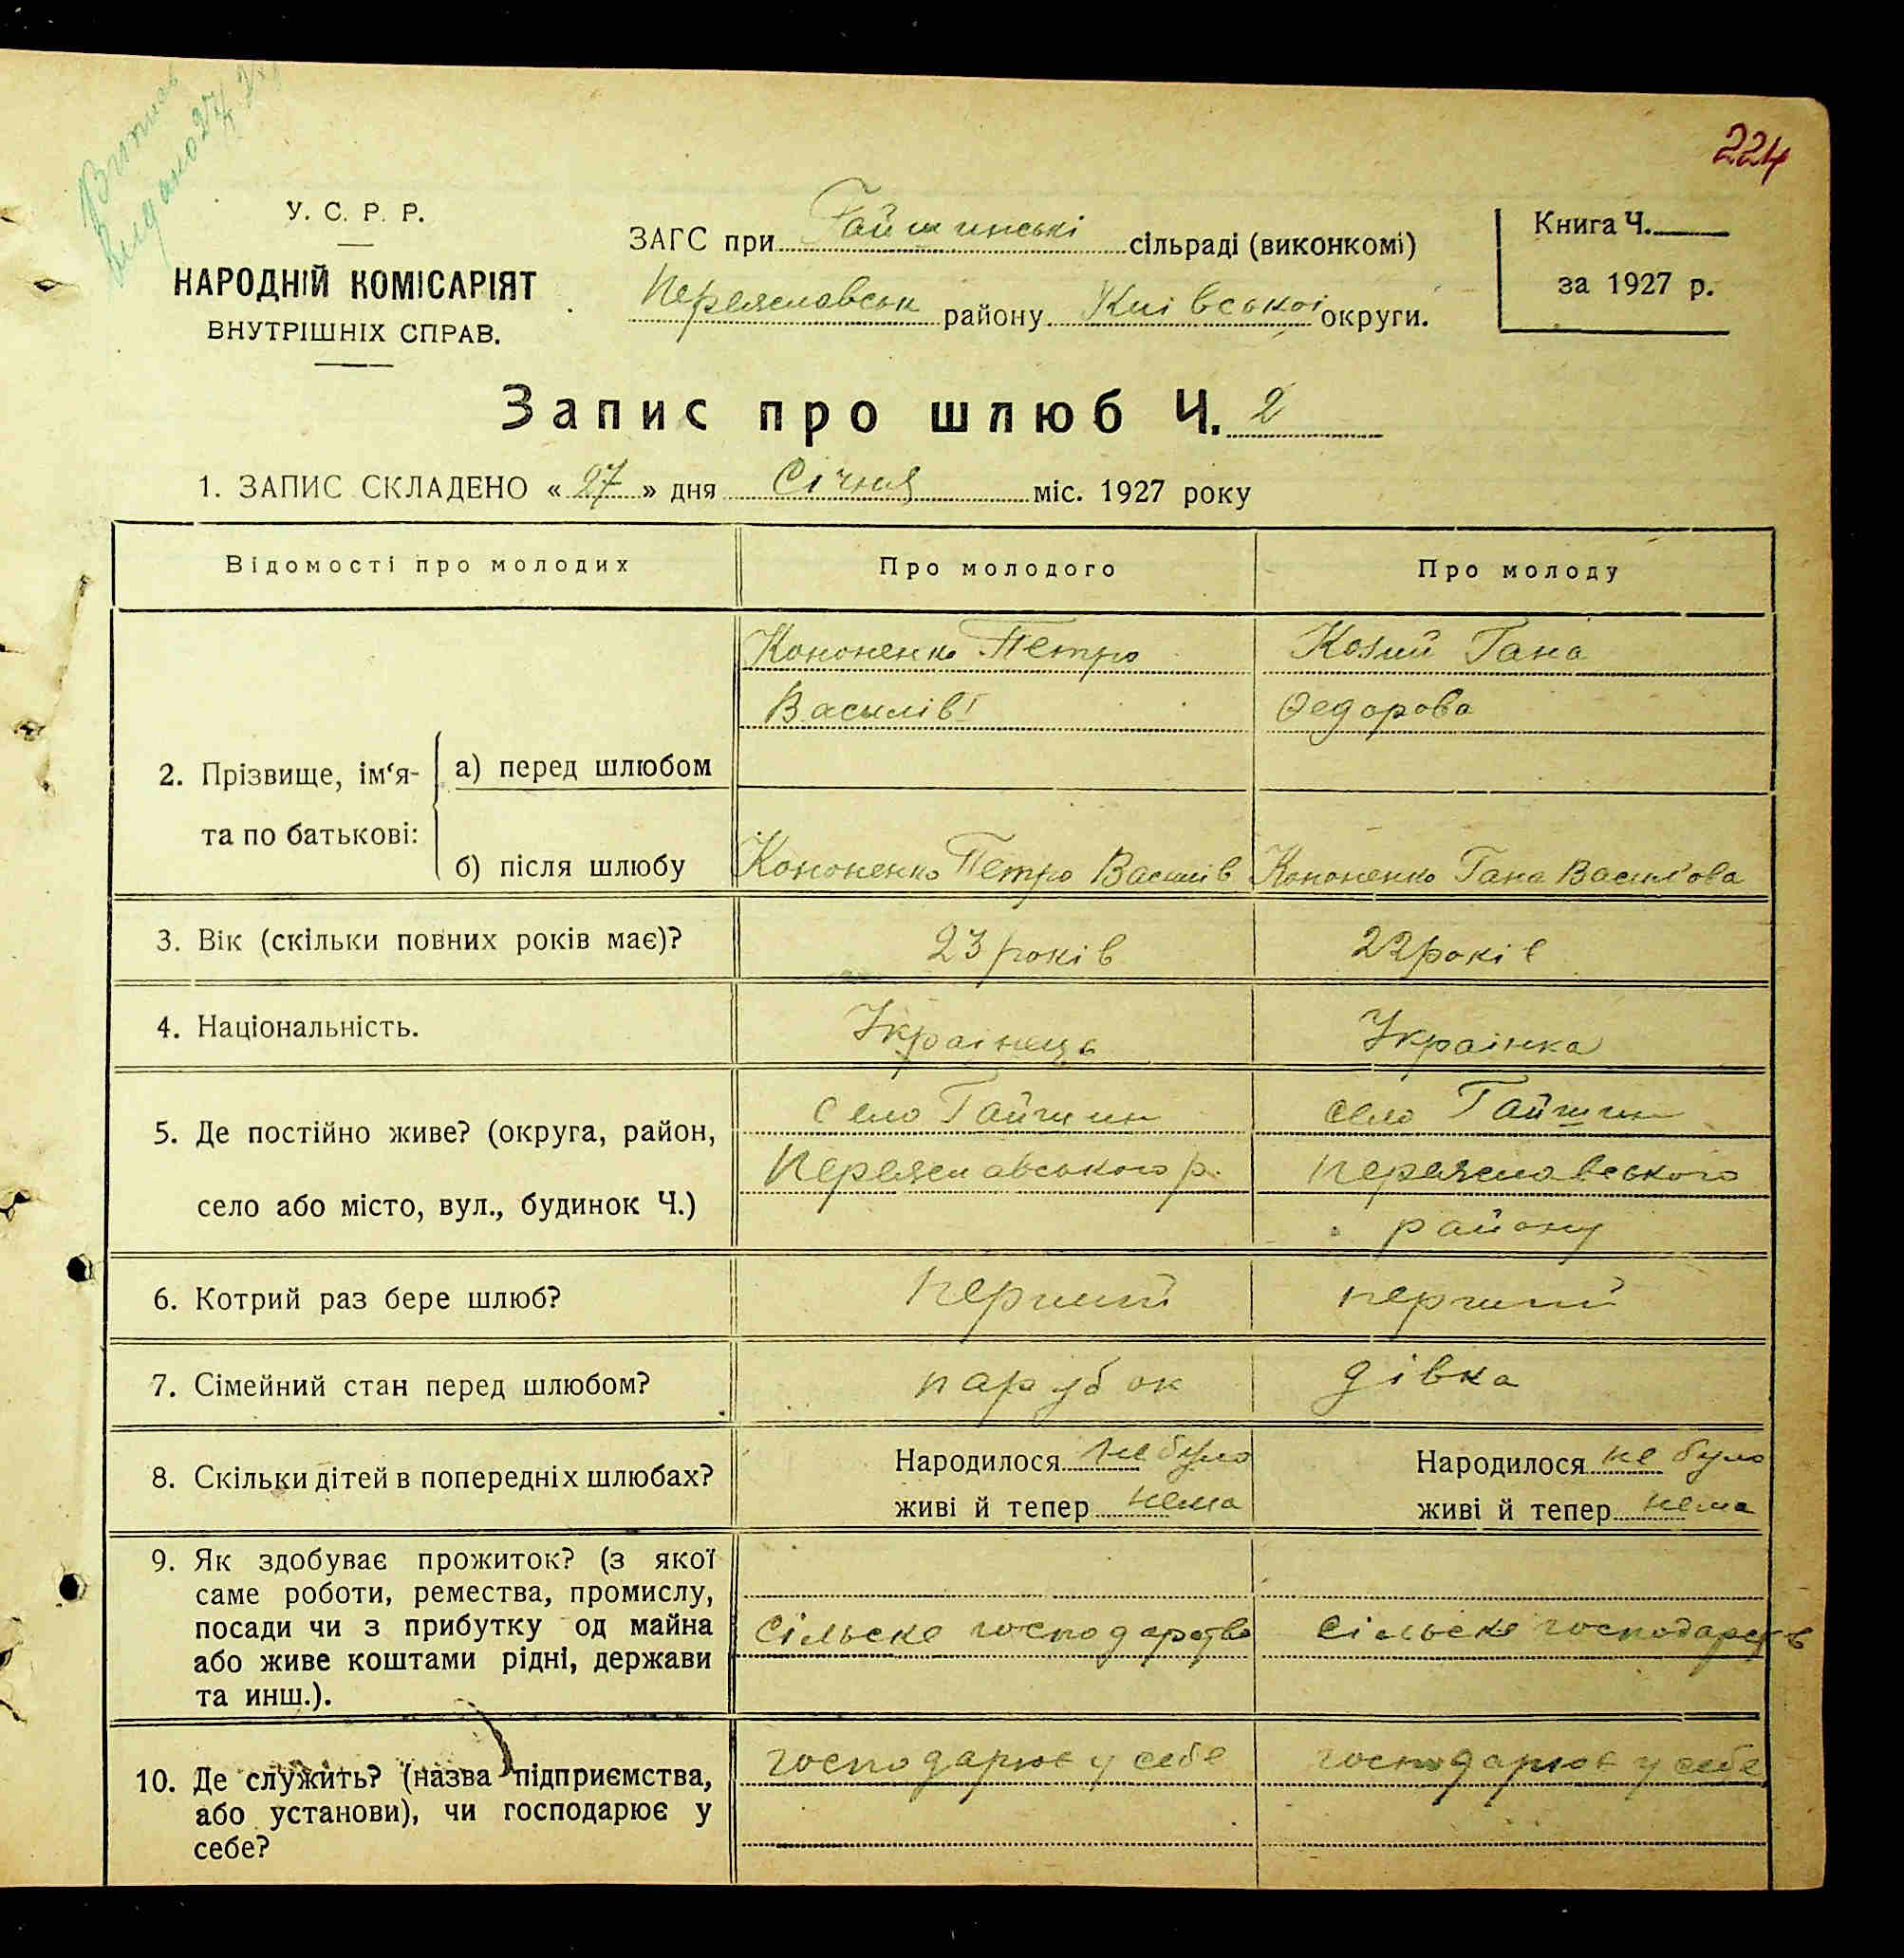 Витяг
видано 27/I
224
У. С. Р. Р.
НАРОДНІЙ КОМІСАРІЯТ
ВНУТРІШНІХ СПРАВ.
ЗАГС при Гайшинські сільраді (виконкомі)
Переяславськ району Київської округи.
Книга Ч.
за 1927 р.
Запис про шлюб Ч. 2
1. ЗАПИС СКЛАДЕНО « 27 » дня Січня міс. 1927 року
Відомості про молодих Про молодого Про молоду
2. Прізвище, ім‘я-
та по батькові:
а) перед шлюбом
Кононенко Петро
Василів
Козий Гана
Федорова
б) після шлюбу
Кононенко Петро Василів
Кононенко Гана Васил'ова
3. Вік (скільки повних років має)? 23 років 22 років
4. Національність. Украінець Украінка
5. Де постійно живе? (округа, район,
село або місто, вул., будинок Ч.)
Село Гайшин
Переяславського р.
село Гайшин
переяславського
району
6. Котрий раз бере шлюб? перший перший
7. Сімейний стан перед шлюбом? парубок дівка
8. Скільки дітей в попередніх шлюбах?
Народилося не було
живі й тепер нема
Народилося не було
живі й тепер нема
9. Як здобуває прожиток? (з якої
саме роботи, ремества, промислу,
посади чи з прибутку од майна
або живе коштами рідні, держави
та инш.).
Сільське господарство
Сільське господарств
10. Де служить? (назва підприємства,
або установи), чи господарює у
себе?
господарює у себе
господарює у себе